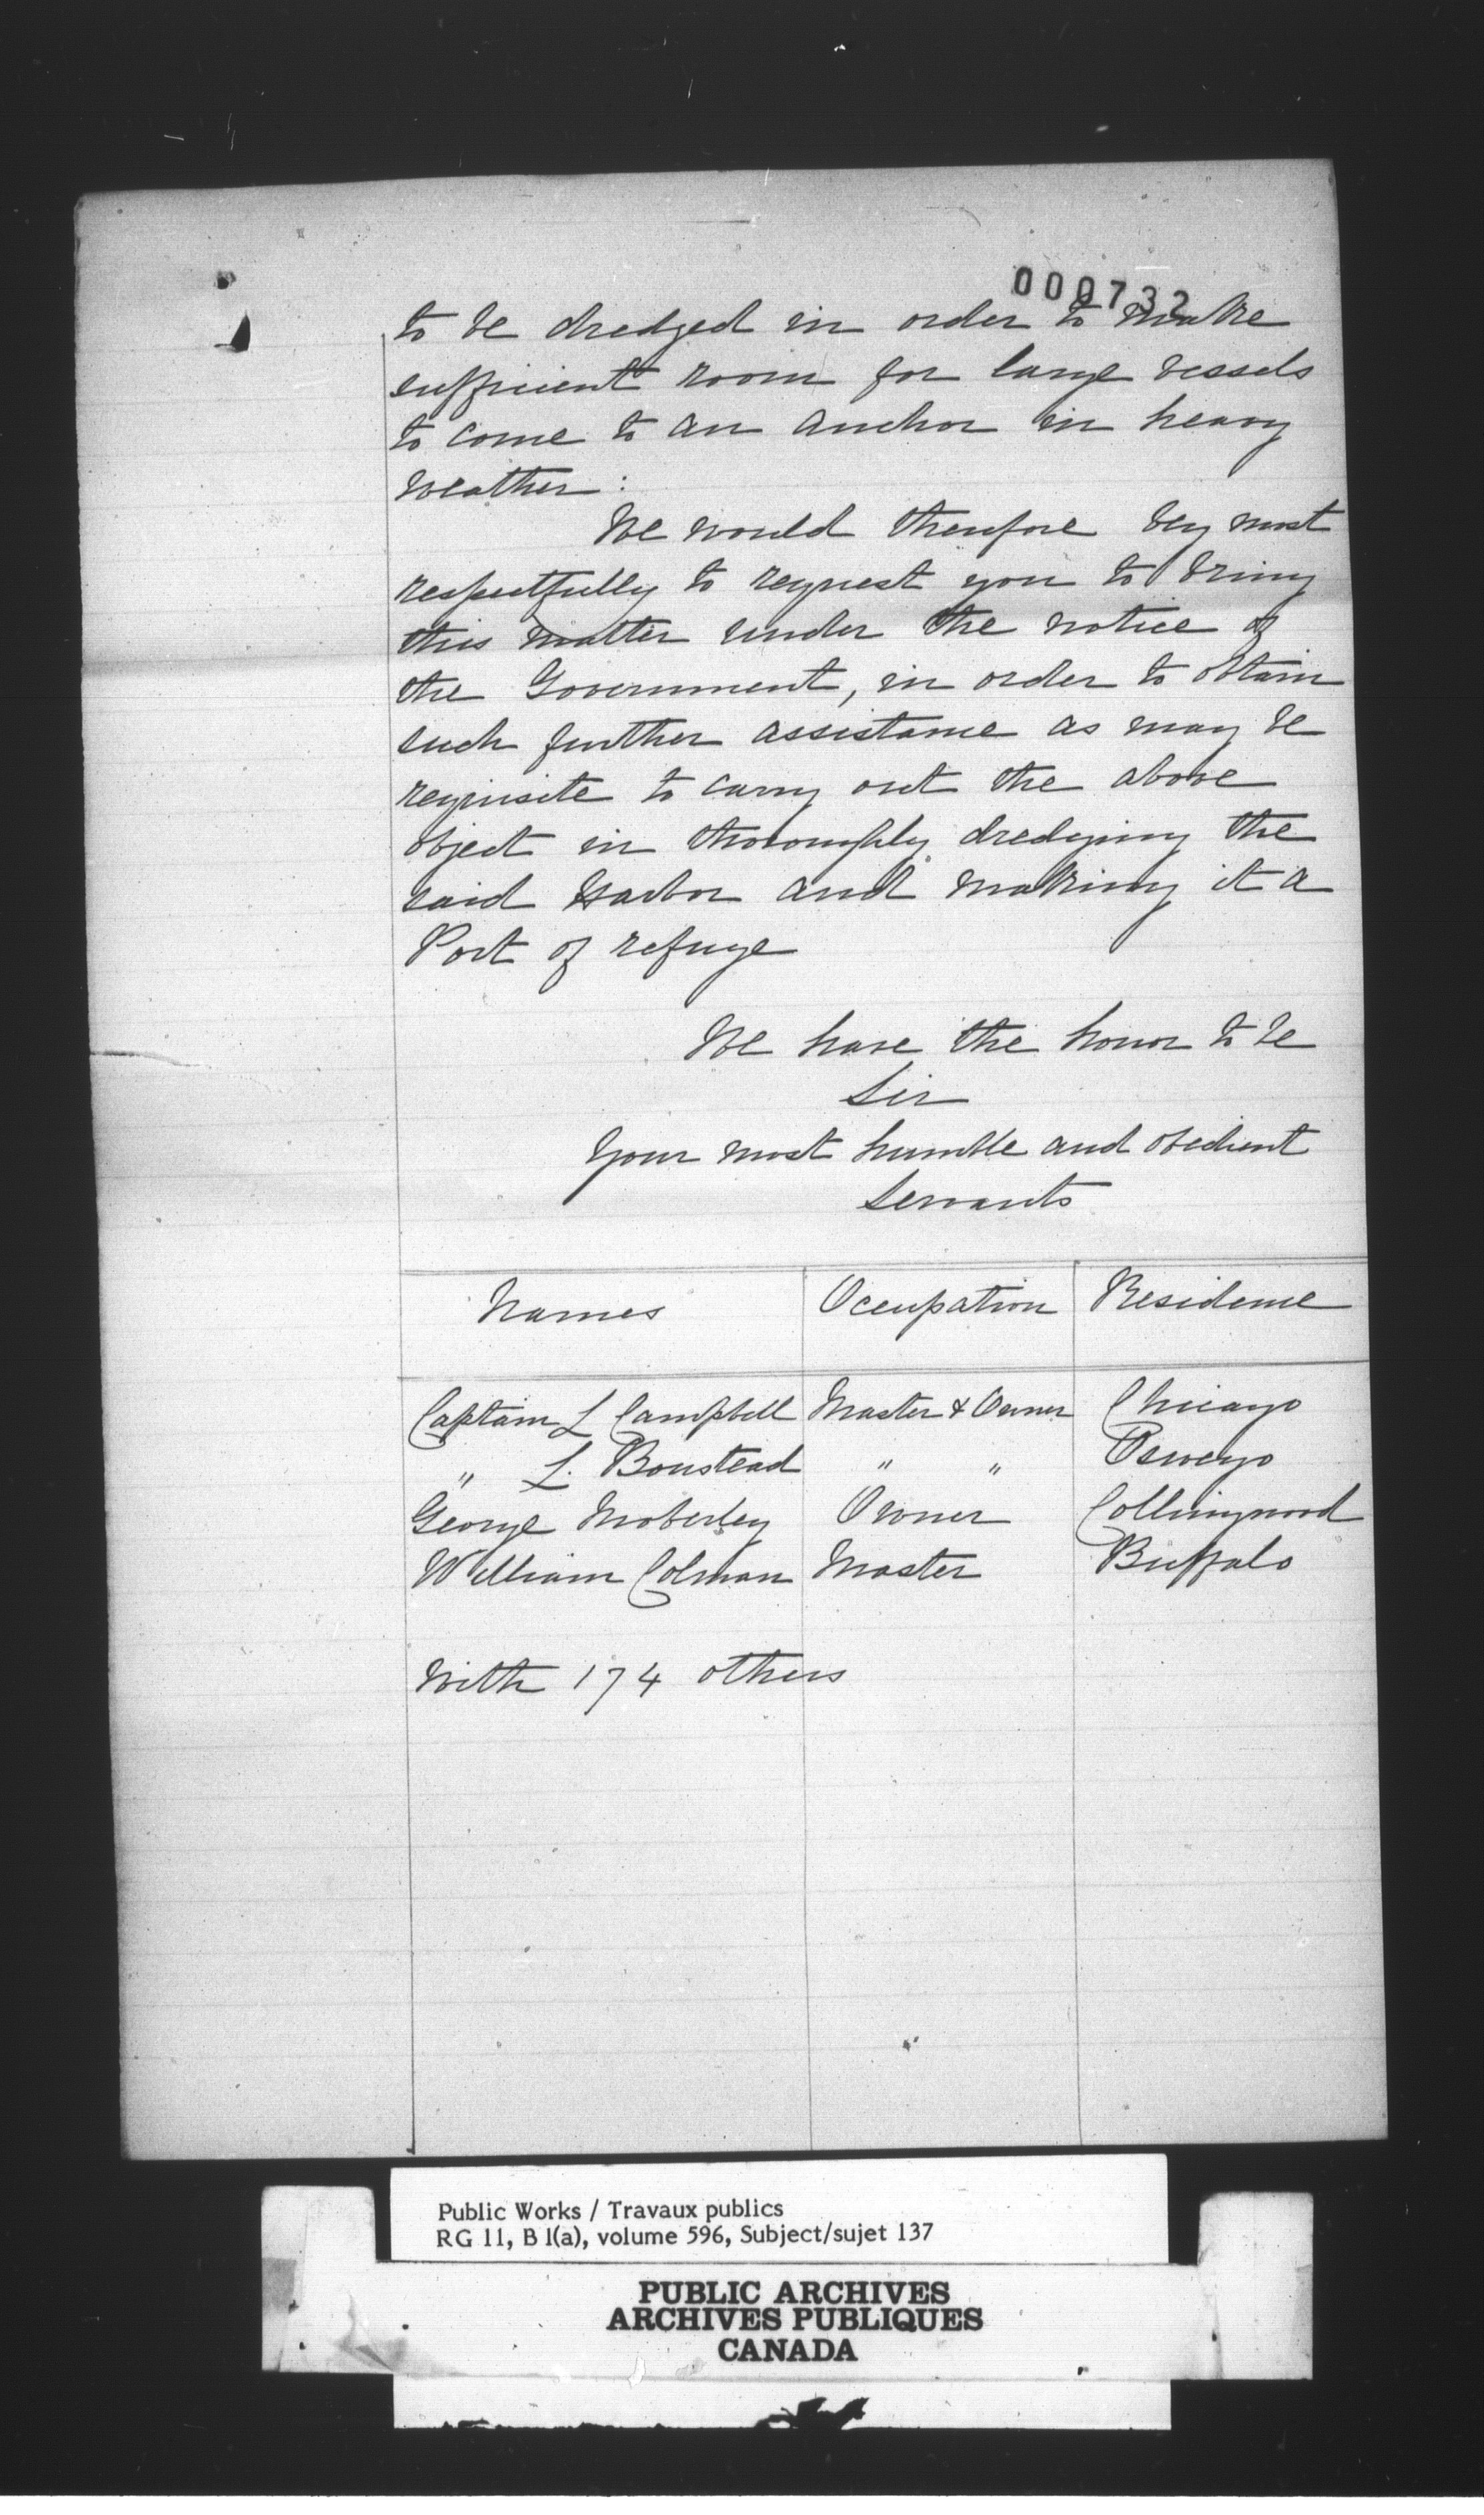 000732
to be dredged in order to make
sufficient room for large vessels
to come to an anchor in heavy
weather:
We would therefore beg most
respectfully to request you to bring
this matter under the notice of
the Government, in order to obtain
such further assistance as may be
requisite to carry out the above
object in thoroughly dredging the
said Harbor and making it a
Port of refuge
We have the honor to be
Sir
Your most humble and obedient
Servants
Names Occupation Residence
Captain L Campbell Master & Owner Chicago
" L. Boustead " " Oswego
George Moberley Owner Collingwood
William Colman Master Buffalo
With 174 others
Public Works / Travaux publics
RG 11, B 1(a), volume 596, Subject/sujet 137
PUBLIC ARCHIVES
ARCHIVES PUBLIQUES
CANADA